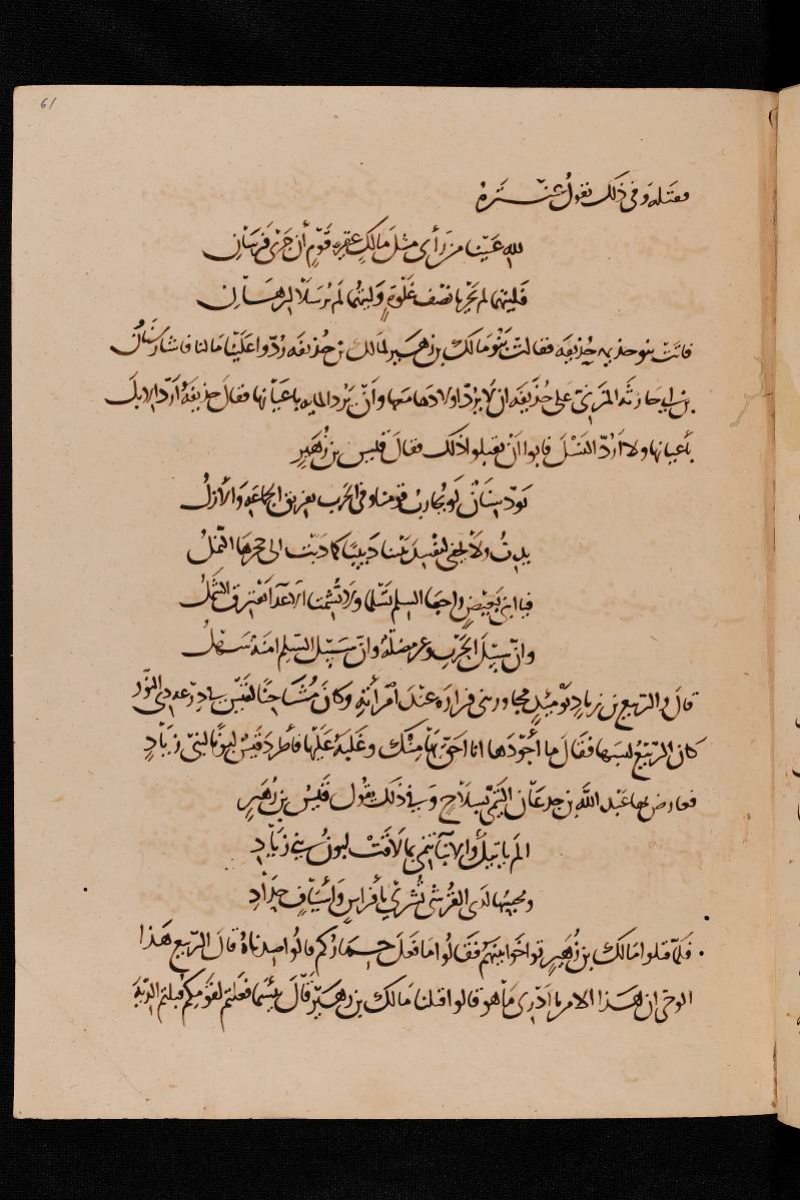 61
فقتله وفي ذلك يقول عنترة
لله عَيْنا من رَأى مثل مَالكٍ عقيرة قَوْمٍ أن جَرى فَرسَانِ
فليتهما لم يَجْريا نصْف غَلْوَةٍ وليتهما لم يُرسَلا لرهَانِ
فاتت بنو حذيفه فقالت بنو مالك بن زهير لمالك بن حذيفه ردّوا علينا مالنا فاشار سنان
بن ابي حارثه المزني على حُذَيفه ان لا يردّ اولادها معها وأنْ يردّ المايه باعيانها فقال حذيفه أردّ الابل
بأعيانها ولا أردّ النسْل فابوا أنْ يقبلوا ذلك فقال قيس بن زُهَيرٍ
يودّ سنانٌ لو يُحارب قومنا وفي الحرب تفريق الجماعه والأزلُ
يدبّ ولا يخفى ليفسد بيننا دبيبًا كما دبّت الى جحرها النّملُ
فيا ابني بغيضٍ راجعا السلم تسْلما ولا تُشمتا الاعداء يفترق الشملُ
وانّ سبيل الحَرْب وعر مضلّة وانّ سبيل السّلم امنة سهلُ
قال والربيع بن زيادٍ يومئذٍ مجاور بني فزاره عند أمرأته وكان مُشاحنًا لقيس في درعه ذي النّور
كان الربّيع لبسها فقال ما أجْوَدها انا احق بها منك وغلبَهُ عليْها فأطرد قيسٌ لبونًا لبني زيَادٍ
فعارض بها عبد الله بن جدعان التيميّ بسلاحٍ وفي ذلك يقول قيس بن زهيرٍ
الم ياتيك والانبآء تنمي بما لاقت لبون بني زيَادِ
ومحبسها لدى القُرشي تُشري بأفراسٍ وأسْيافٍ حِدَادِ
فلمّا قتلوا مالك بن زُهيرٍ تواخوا بينهم فقالوا ما فعل حماركم قالوا صدناهُ قال الربيع هذا
الوحي ان هذا الامر ما ادري ما هو قالوا قتلنا مالك بن زهيرٍ قال بئسما فعلتم لقومكم قبلتم الديَة